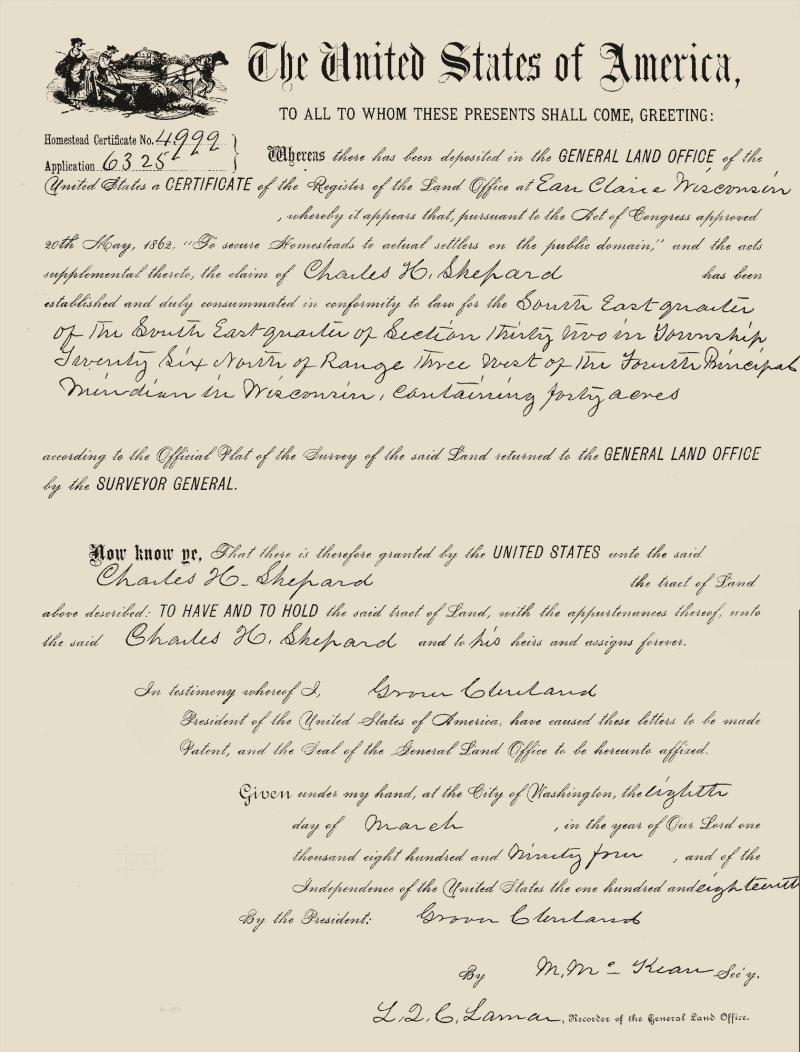 The United States of America,
TO ALL TO WHOM THESE PRESENTS SHALL COME, GREETING:
Homestead Certificate No. 4999
Application 6325
Whereas there has been deposited in the GENERAL LAND OFFICE of the
United States a CERTIFICATE of the Register of the Land Office at Eau Claire Wisconsin
, whereby it appears that, pursuant to the Act of Congress approved
20th May, 1862, "To secure Homesteads to actual settlers on the public domain," and the acts
supplemental thereto, the claim of Charles H. Shepard has been
established and duly consummated in conformity to law for the South East quarter
of the South East quarter of Section Thirty two in Township
Twenty Six North of Range Three West of the Fourth Principal
Meridian in Wisconsin, Containing forty acres
according to the Official Plat of the Survey of the said Land returned to the GENERAL LAND OFFICE
by the SURVEYOR GENERAL.
Now know ye, That there is therefore granted by the UNITED STATES unto the said
Charles H. Shepard the tract of Land
above described: TO HAVE AND TO HOLD the said tract of Land, with the appurtenances thereof, unto
the said Charles H. Shepard and to his heirs and assigns forever.
In testimony whereof I, Grover Cleveland
President of the United States of America, have caused these letters to be made
Patent, and the Seal of the General Land Office to be hereunto affixed.
Given under my hand, at the City of Washington, the eighth
day of March , in the year of Our Lord one
thousand eight hundred and Ninety four , and of the
Independence of the United States the one hundred and eighteenth
By the President: Grover Cleveland
By M. McKean Sec'y.
L. Q. C. Lamar, Recorder of the General Land Office.